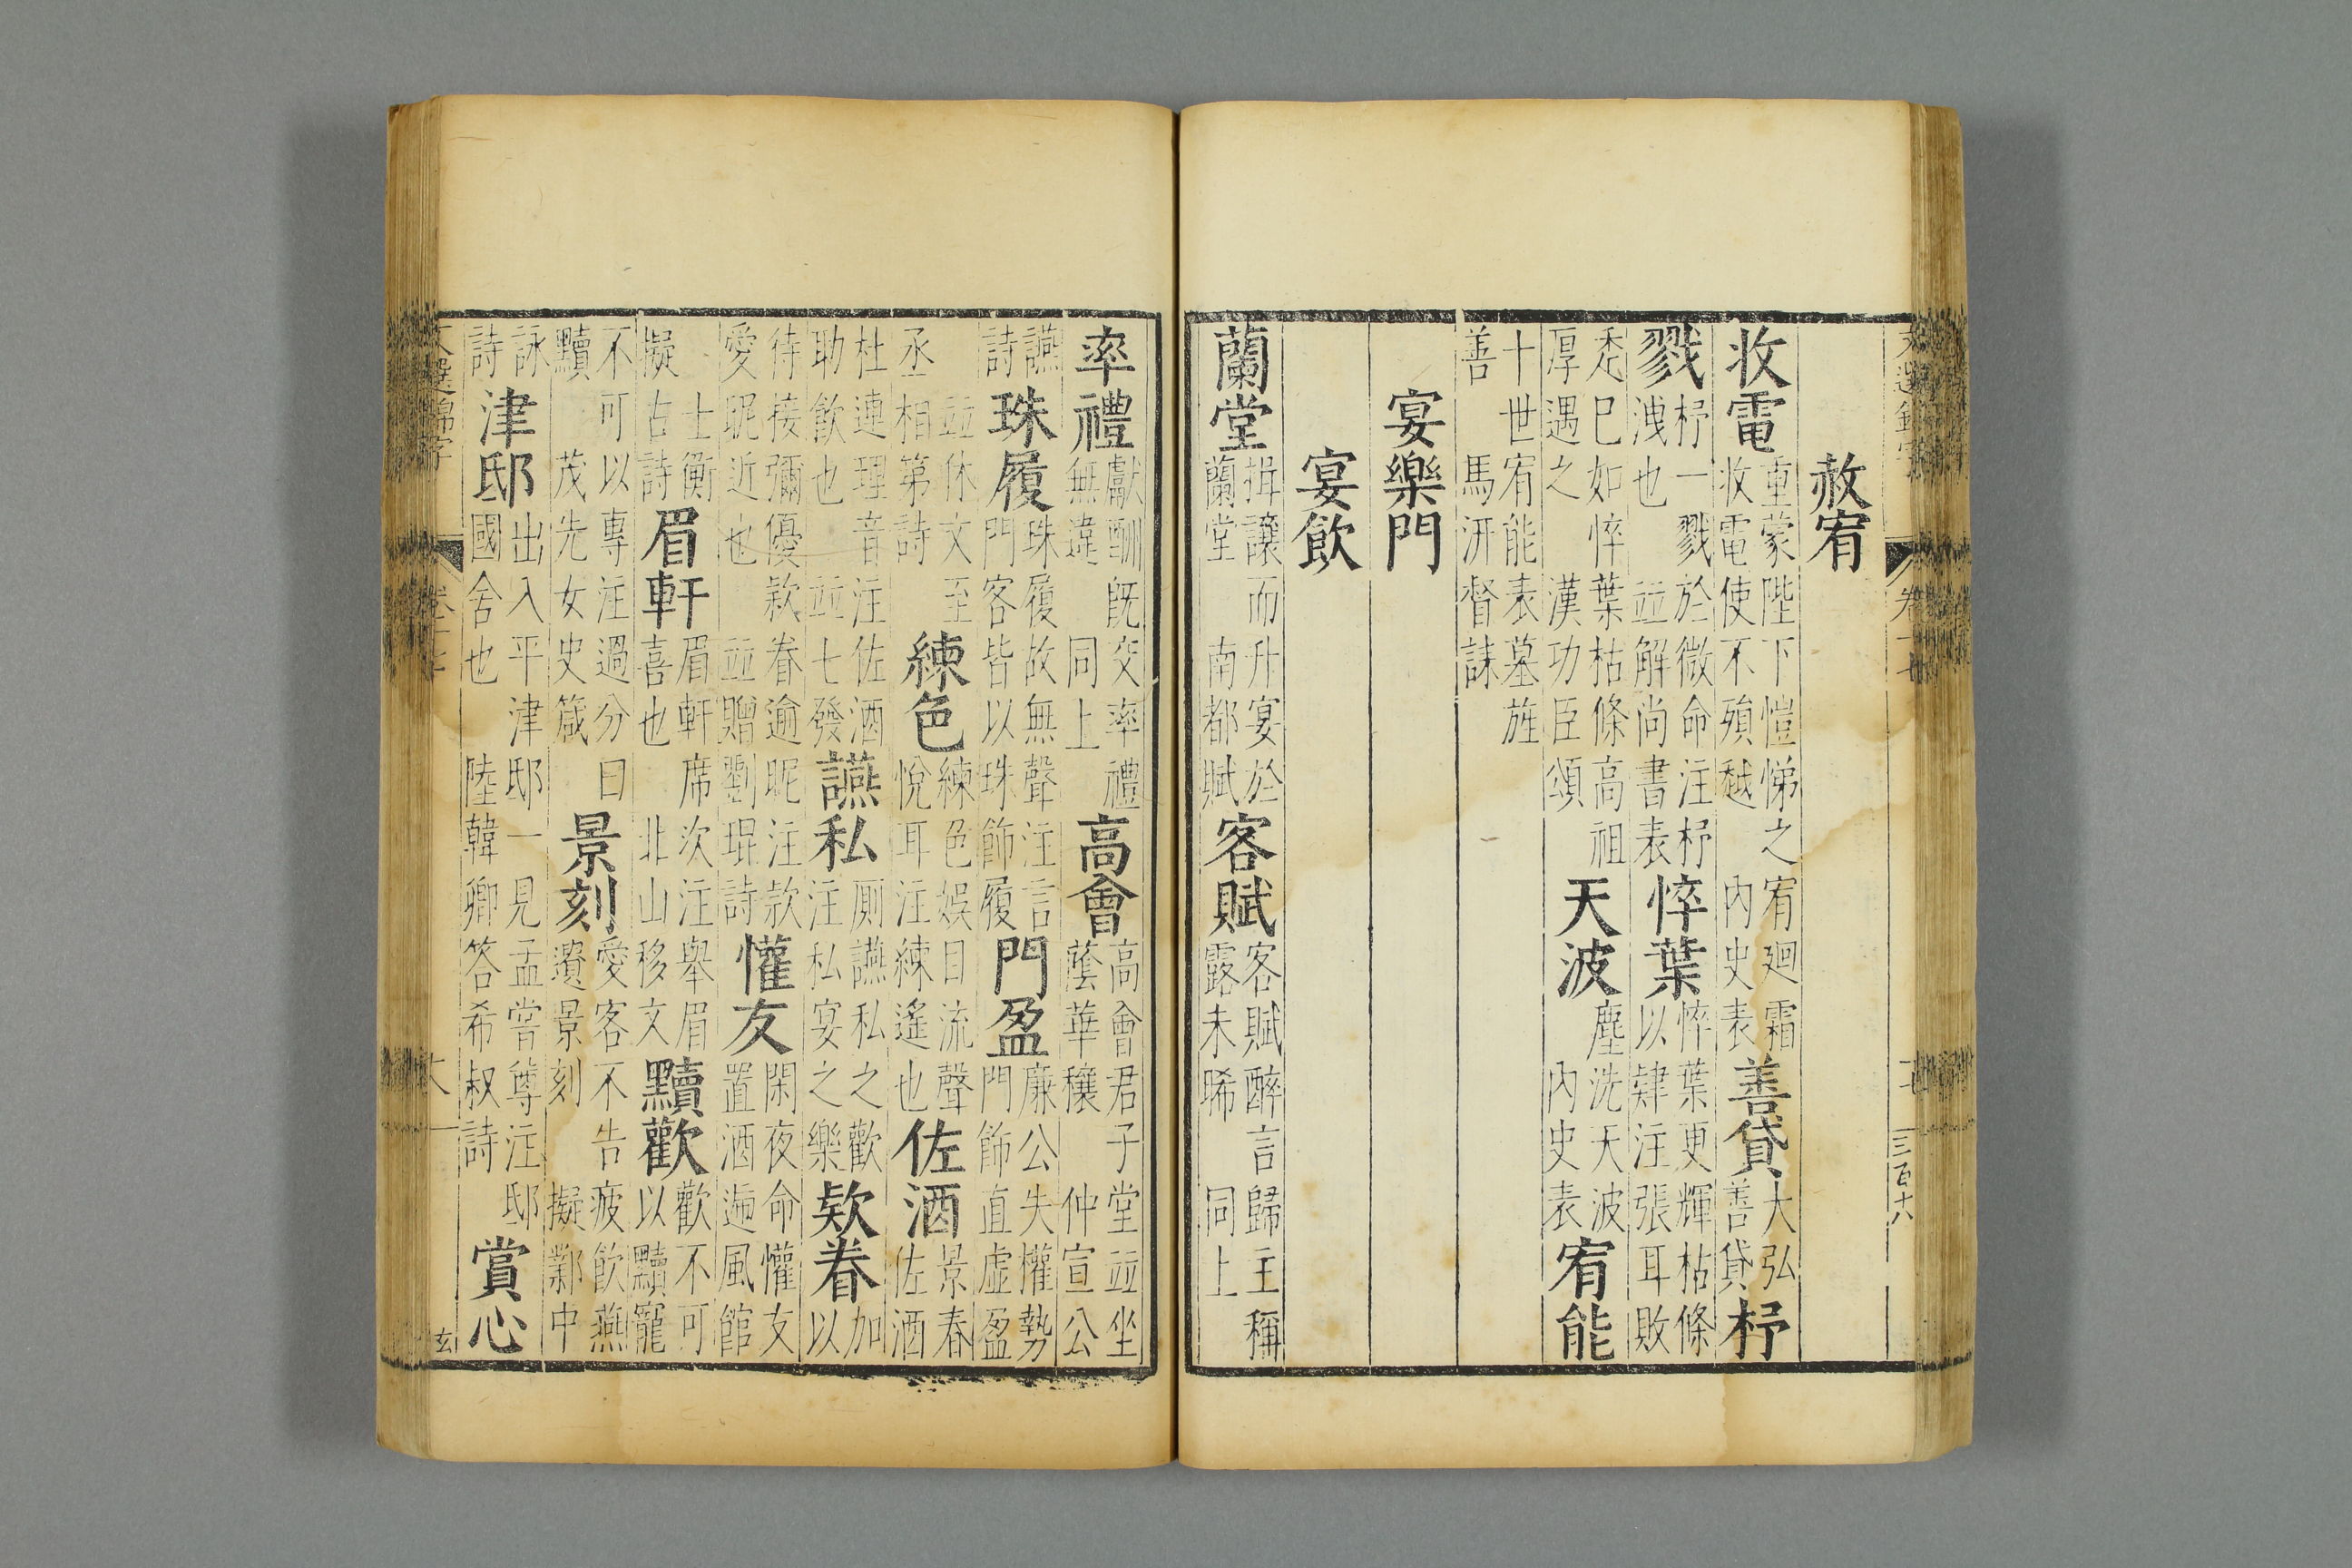 文選錦字 卷十七 十七 三百十八
赦宥
收電重蒙陛下愷悌之宥廻霜收電使不殞越 內史表善貸大弘善貸杼
戮杼一戮於微命注杼洩也 並解尚書表悴葉悴葉更輝枯條以肄注張耳敗
禿已如悴葉枯條高祖厚遇之 漢功臣頌天波塵洗天波 內史表宥能
十世宥能表墓旌善 馬汧督誄
宴樂門
宴飲
蘭堂揖讓而升宴於蘭堂 南都賦客賦客賦醉言歸主稱露未晞 同上
率禮獻酬既交率禮無違 同上高會高會君子堂並坐蔭華穰 仲宣公
讌詩珠履珠履故無聲注言門客皆以珠飾履門盈廉公失權勢門飾直虛盈
並休文至丞相第詩練色練色娛目流聲悅耳注練遙也佐酒景春佐酒
杜連理音注佐酒助飲也 並七發讌私厠讌私之歡注私宴之樂欵眷加以
待接彌優款眷逾昵注款愛昵近也 並贈劉琨詩懽友閑夜命懽友置酒迊風館
士衡擬古詩眉軒眉軒席次注舉眉喜也 北山移文黷歡歡不可以黷寵
不可以專注過分曰黷 茂先女史箴景刻愛客不告疲飲燕遺景刻 擬鄴中
詠詩津邸出入平津邸一見孟嘗尊注邸國舍也 陸韓卿答希叔詩賞心